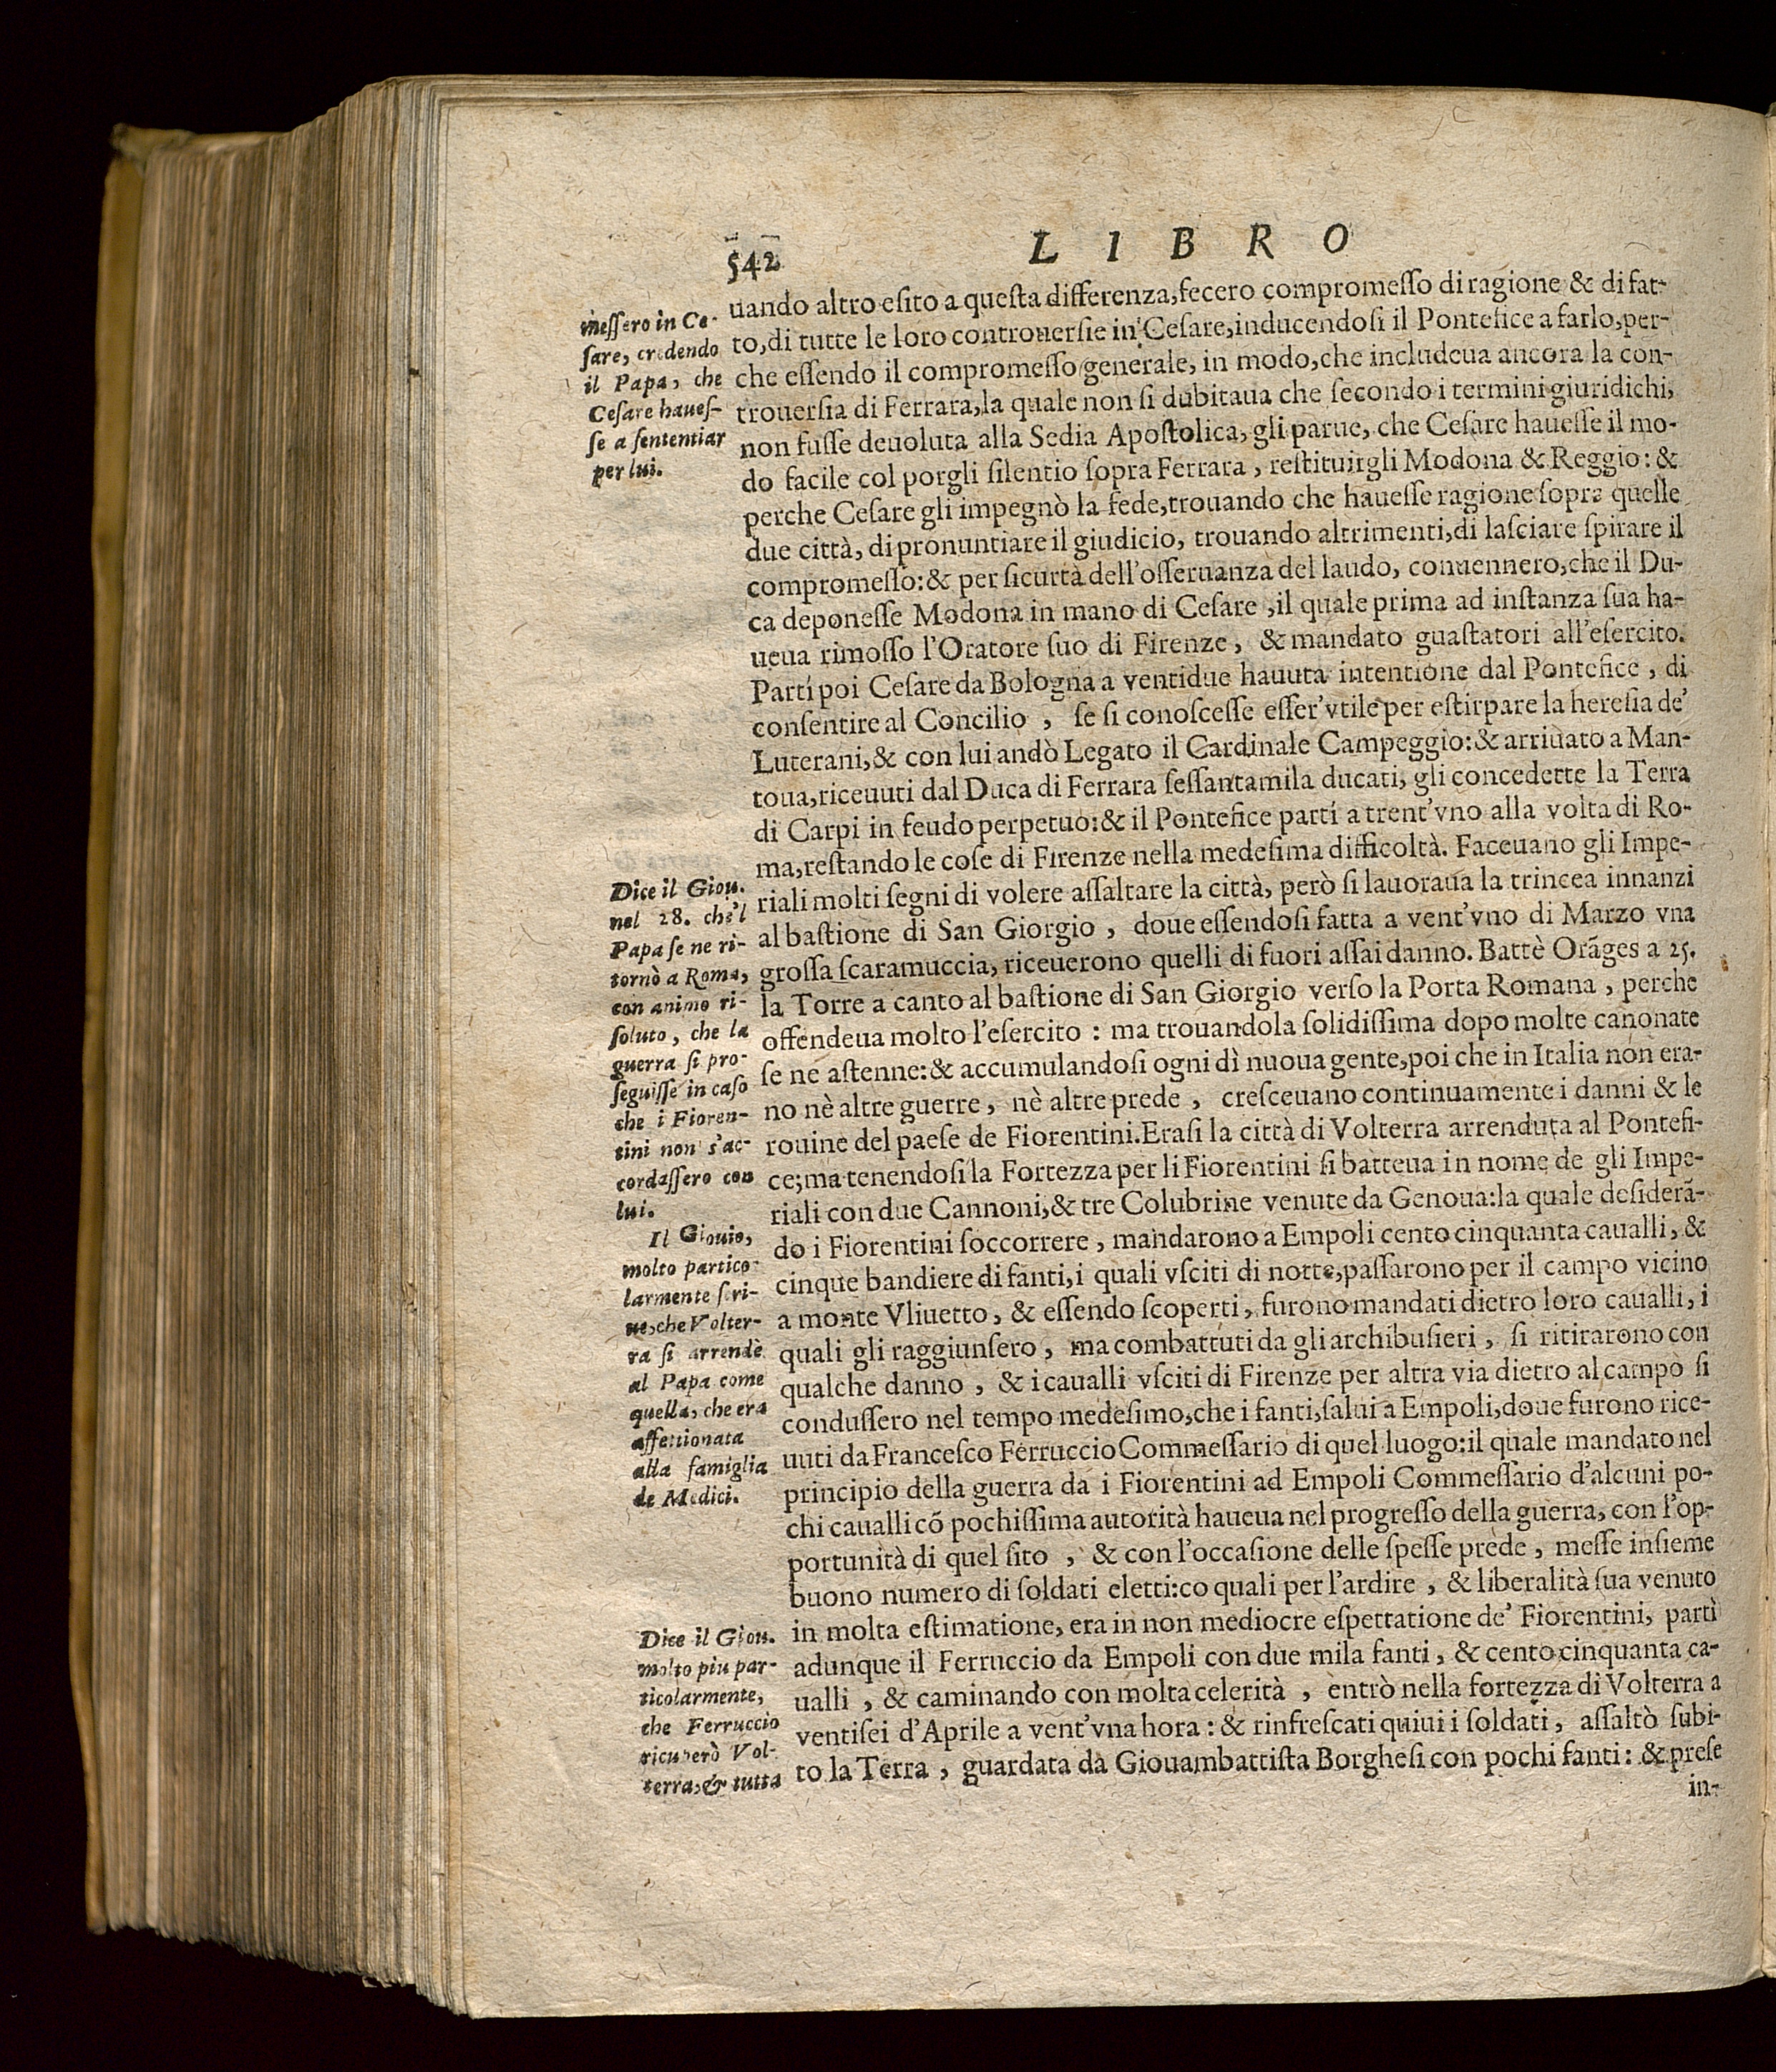 542
LIBRO
messero in Ce-
sare, credendo
il Papa, che
Cesare haues-
se a sententiar
per lui.
uando altro esito a questa differenza, fecero compromesso di ragione & di fat-
to, di tutte le loro controuersie in Cesare, inducendosi il Pontefice a farlo, per-
che essendo il compromesso generale, in modo, che includeua ancora la con-
trouersia di Ferrara, la quale non si dubitaua che secondo i termini giuridichi,
non fusse deuoluta alla Sedia Apostolica, gli parue, che Cesare hauesse il mo-
do facile col porgli silentio sopra Ferrara, restituirgli Modona & Reggio: &
perche Cesare gli impegnò la fede, trouando che hauesse ragione sopra quelle
due città, di pronuntiare il giudicio, trouando altrimenti, di lasciare spirare il
compromesso: & per sicurtà dell'osseruanza del laudo, conuennero, che il Du-
ca deponesse Modona in mano di Cesare, il quale prima ad instanza sua ha-
ueua rimosso l'Oratore suo di Firenze, & mandato guastatori all'esercito.
Partì poi Cesare da Bologna a ventidue hauuta intentione dal Pontefice, di
consentire al Concilio, se si conoscesse esser'vtile per estirpare la heresia de'
Luterani, & con lui andò Legato il Cardinale Campeggio: & arriuato a Man-
toua, riceuuti dal Duca di Ferrara sessantamila ducati, gli concedette la Terra
di Carpi in feudo perpetuo: & il Pontefice partì a trent'vno alla volta di Ro-
ma, restando le cose di Firenze nella medesima difficoltà. Faceuano gli Impe-
riali molti segni di volere assaltare la città, però si lauoraua la trincea innanzi
al bastione di San Giorgio, doue essendosi fatta a vent'vno di Marzo vna
grossa scaramuccia, riceuerono quelli di fuori assai danno. Battè Orãges a 25.
la Torre a canto al bastione di San Giorgio verso la Porta Romana, perche
offendeua molto l'esercito: ma trouandola solidissima dopo molte canonate
se ne astenne: & accumulandosi ogni dì nuoua gente, poi che in Italia non era-
no nè altre guerre, nè altre prede, cresceuano continuamente i danni & le
rouine del paese de Fiorentini. Erasi la città di Volterra arrenduta al Pontefi-
ce; ma tenendosi la Fortezza per li Fiorentini si batteua in nome de gli Impe-
riali con due Cannoni, & tre Colubrine venute da Genoua: la quale desiderã-
do i Fiorentini soccorrere, mandarono a Empoli cento cinquanta caualli, &
cinque bandiere di fanti, i quali vsciti di notte, passarono per il campo vicino
a monte Vliuetto, & essendo scoperti, furono mandati dietro loro caualli, i
quali gli raggiunsero, ma combattuti da gli archibusieri, si ritirarono con
qualche danno, & i caualli vsciti di Firenze per altra via dietro al campo si
condussero nel tempo medesimo, che i fanti, salui a Empoli, doue furono rice-
uuti da Francesco Ferruccio Commessario di quel luogo: il quale mandato nel
principio della guerra da i Fiorentini ad Empoli Commessario d'alcuni po-
chi caualli cõ pochissima autorità haueua nel progresso della guerra, con l'op-
portunità di quel sito, & con l'occasione delle spesse prede, messe insieme
buono numero di soldati eletti: co quali per l'ardire, & liberalità sua venuto
in molta estimatione, era in non mediocre espettatione de' Fiorentini, partì
adunque il Ferruccio da Empoli con due mila fanti, & cento cinquanta ca-
ualli, & caminando con molta celerità, entrò nella fortezza di Volterra a
ventisei d'Aprile a vent'vna hora: & rinfrescati quiui i soldati, assaltò subi-
to la Terra, guardata da Giouambattista Borghesi con pochi fanti: & prese
in-
Dice il Giou.
nel 28. che'l
Papa se ne ri-
tornò a Roma,
con animo ri-
soluto, che la
guerra si pro-
seguisse in caso
che i Fioren-
tini non s'ac-
cordassero con
lui.
Il Giouio,
molto partico-
larmente scri-
ue, che Volter-
ra si arrendè
al Papa come
quella, che era
affettionata
alla famiglia
de Medici.
Dice il Giou.
molto più par-
ticolarmente,
che Ferruccio
ricuperò Vol-
terra, & tutta